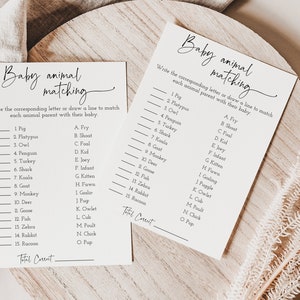 Baby animal
matching
te the corresponding letter or draw a line to match
each animal parent with their baby.
1. Pig
2. Platypus
3. Owl
4. Penguin
5. Turkey
6. Shark
7.
8. Goat
9. Monkey
10. Deer
11. Goose
12. Fish
13. Zebra
14. Rabbit
15. Racoon
A. Fry
B. Shoat
C. Foal
D. Kid
E. Joey
F. Infant
G. Kitten
H. Fawn
I. Gosling
J.
K. Owlet
L. Cub
M. Poult
N. Chick
O. Pup
Total Correct
Baby animal
matching
Write the corresponding letter or draw a line to match
each animal parent with their baby.
1. Pig
2. Platypus
3. Owl
4. Penguin
5. Turkey
6. Shark
7.
8. Goat
9. Monkey
10. Deer
11. Goose
12. Fish
13. Zebra
14. Rabbit
15. Racoon
A. Fry
B. Shoat
C. Foal
D. Kid
E. Joey
F. Infant
G. Kitten
H. Fawn
I. Gosling
J.
K. Owlet
L. Cub
M. Poult
N. Chick
O. Pup
Total Correct